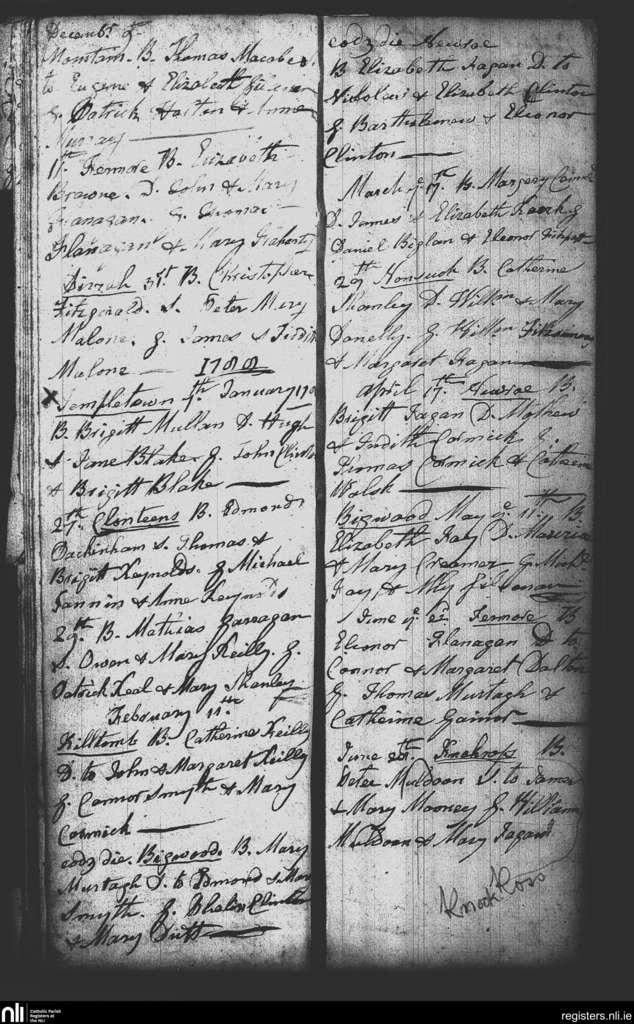 Decembr ye
B. Thomas Macabe S.
to Eugene & Elizabeth
g. Patrick & Anne
Murray
11th. Fermore B. Elizabeth
Browne. D. John & Mary
Flanagan. G. Thomas
Flanagan & Mary Flaherty
31st. B. Christopher
Fitzgerald. S. Peter Mary
Malone. g. James &
Malone — 1788
Templetown January
B. Brigitt Mullan D. Hugh
& Jane Blake. g. John Clinton
& Brigitt Blake —
27th. Clonteens B. Edmond
Packenham S. Thomas &
Brigitt Reynolds. g Michael
Fannin & Anne Reynolds
29th. B. Mathias Garragan
S. Owen & Mary Reilly. g.
Patrick Keal & Mary Shanley
February 11th
Killtomb B. Catherine Reilly
D. to John & Margaret Reilly
g. Connor Smyth & Mary
Cormick —
eodm die. Bigwood. B. Mary
Murtagh D. to Edmond & Mary
Smyth. g. Clinton
& Mary —
eodm die Newroe
B Elizabeth Fagan D. to
Nicholas & Elizabeth Clinton
g Bartholemew & Eleonor
Clinton —
March ye 17th. B. Margery
D. James & Elizabeth g
Daniel Biglan & Eleonor
29th B. Catherine
Shanley D. Willm & Mary
Donelly. g. Willm Fitzsimons
& Margaret Fagan —
April 17th Newroe B.
Brigitt Fagan D. Mathew
& Judith Cormick g.
Thomas Cormick & Catherine
Walsh —
Bigwood May ye 11th B.
Elizabeth Fay D. Maurice
& Mary Creamer g Michl
Fay & Mly
June ye Fermore B
Eleonor Flanagan D to
Connor & Margaret Dalton
g. Thomas Murtagh &
Catherine Gainor —
June B.
Peter Muldoon S. to James
& Mary Mooney g William
Muldoon & Mary Fagan
Knock Ross
nli
Catholic Parish
Registers at
the NLI
registers.nli.ie